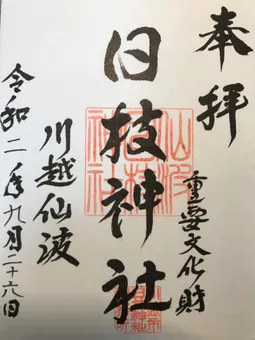 奉拝
重要文化財
日枝神社
川越仙波
令和二年九月二十六日